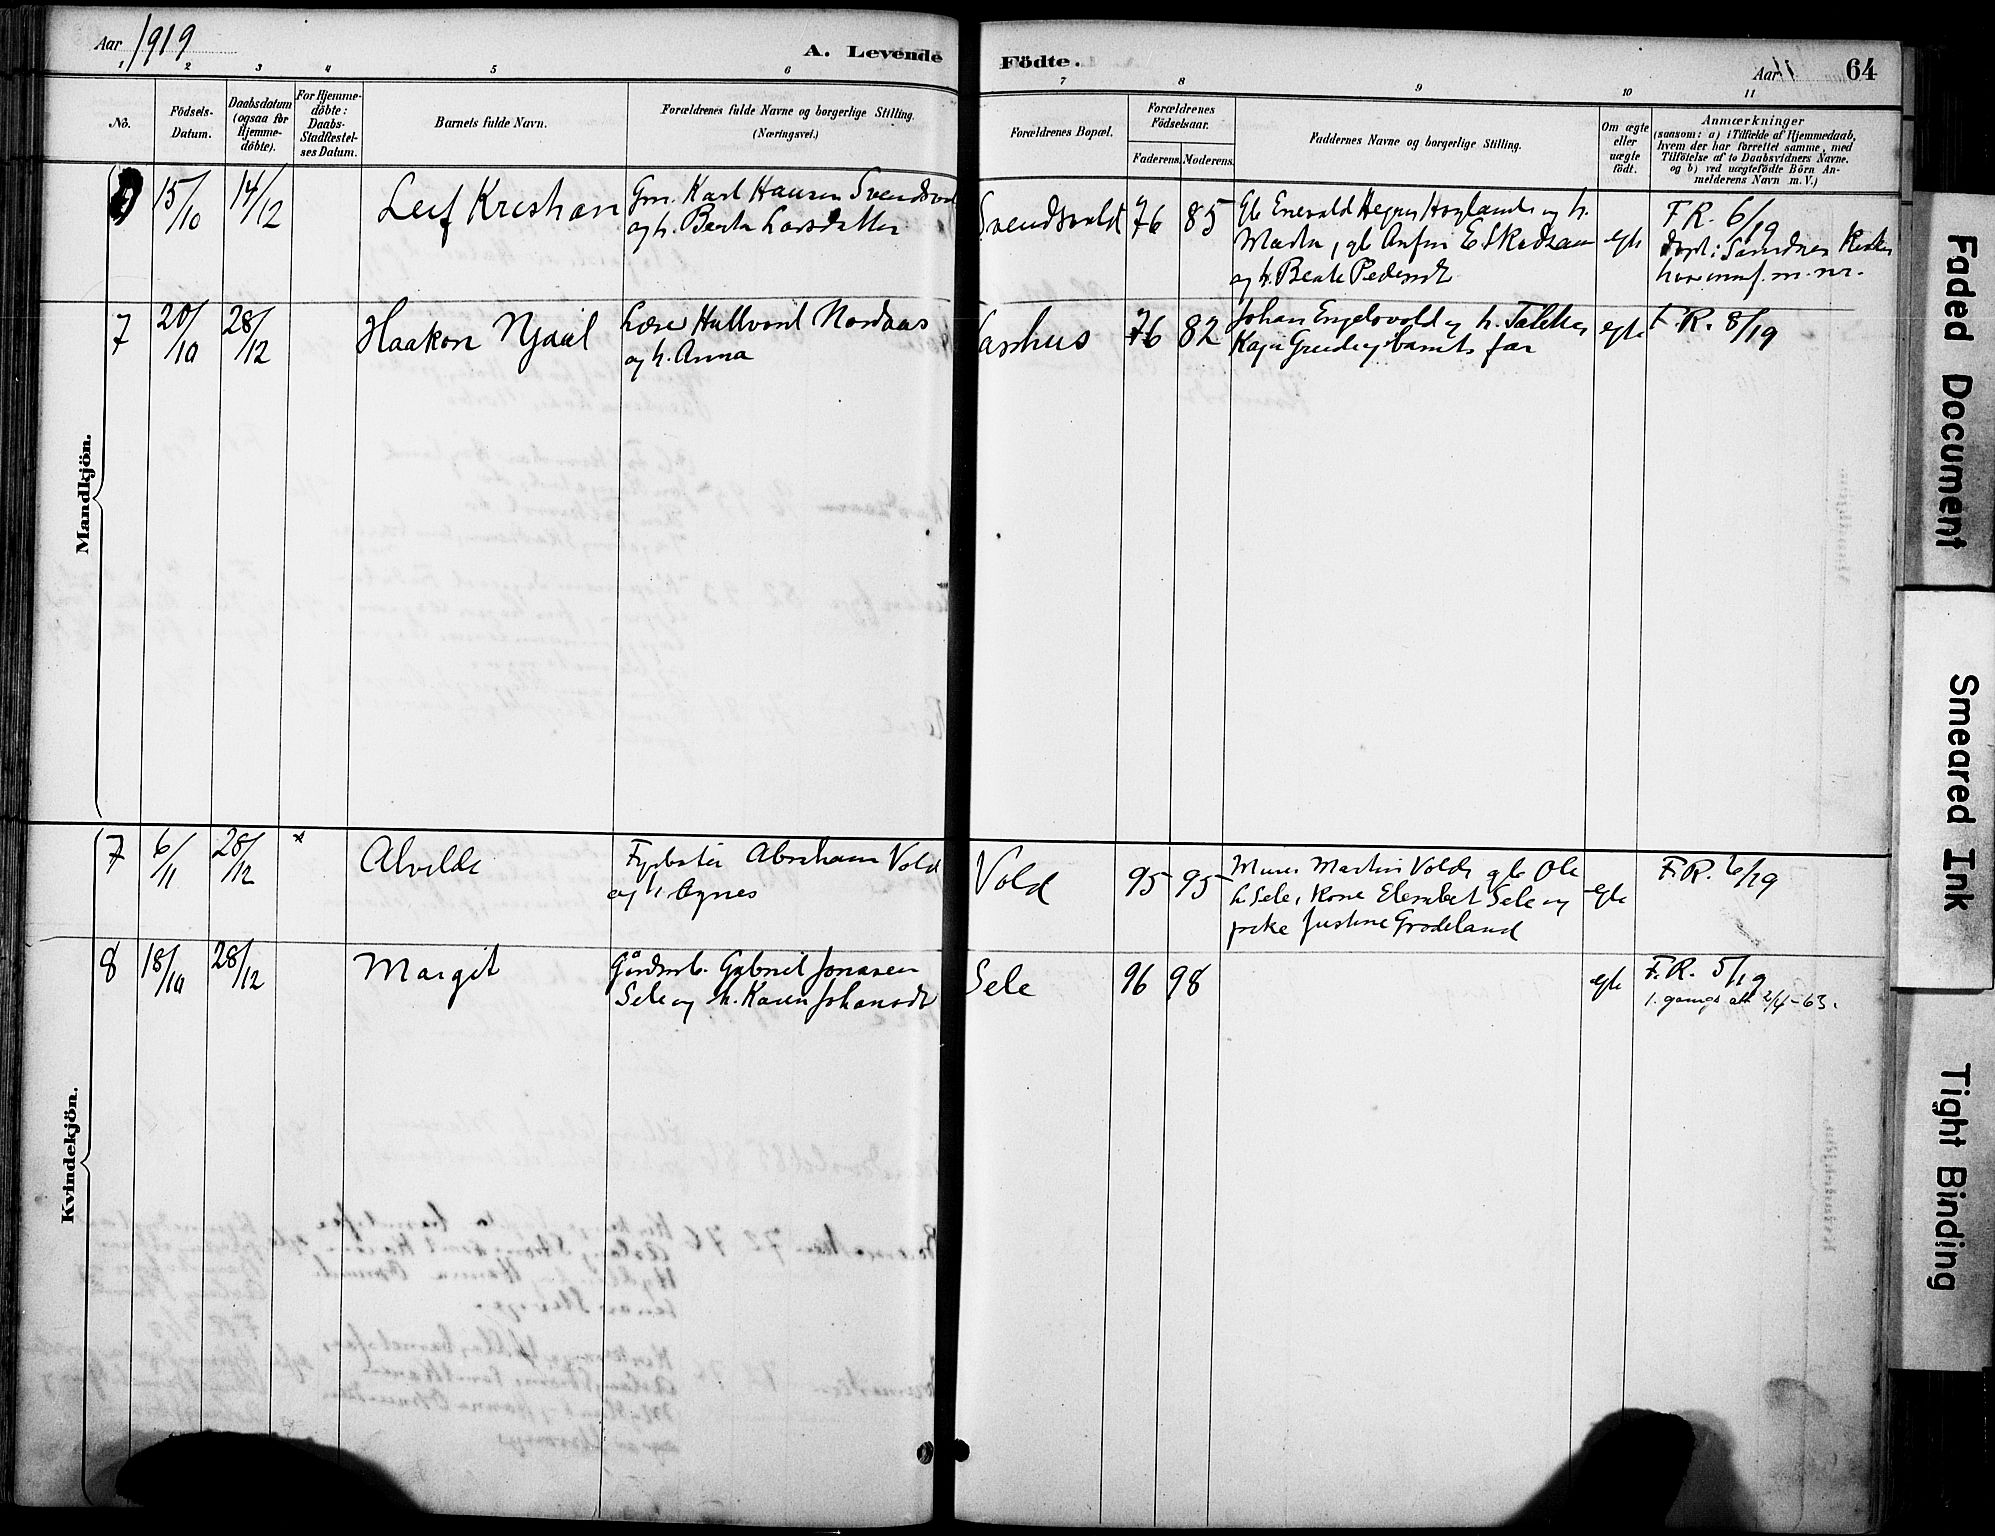 Aar 1919
A. Levende
Födte.
Aar
64
1 2 3 4 5 6 7 8 9 10 11
No.
Födsels-
Datum.
Daabsdatum
(ogsaa for
Hjemme-
döbte).
For Hjemme-
döbte:
Daabs-
Stadfæstel-
ses Datum.
Barnets fulde Navn.
Forældrenes fulde Navne og borgerlige Stilling.
(Næringsvei.)
Forældrenes Bopæl.
Forældrenes
Födselsaar.
Faderens. Moderens.
Faddernes Navne og borgerlige Stilling.
Om ægte
eller
uægte
födt.
Anmærkninger
(saasom: a) i Tilfælde af Hjemmedaab,
hvem der har forrettet samme, med
Tilföielse af to Daabsvidners Navne.
og b) ved uægtefödte Börn An-
melderens Navn m. V.)
Mandkjön.
15/10 14/12 Leif Kristian
Gm. Karl Hansen Svendsvold
og h. Berta Larsdatter
Svendsvold 76 85
Gb Enevald Hegre Høyland og h.
Marta, gb Arfin E Skadsem
og h. Beate Pedersdt
egte
F.R. 6/19
7 20/10 28/12 Haakon Njaal
Lærer Hallvard Nordaas
og h. Anna
76 82
Johan Engelsvold og h.
og barnets far
egte
F.R. 8/19
Kvindekjön.
7 6/11 28/12 Alvilde
Abraham Vold
og h. Agnes
Vold 95 95
Murer Martin Vold, gb Ole
L Sele, Kone Elisabet Sele og
pike Justine Grødeland
egte
F.R. 6/19
8 18/10 28/12 Margit
Gårdbr. Gabriel Jonasen
Sele og h. Karen Johansdt
Sele 96 98
egte
F.R. 5/19
1. gangs att 2/4-63.
Faded Document
Smeared Ink
Tight Binding